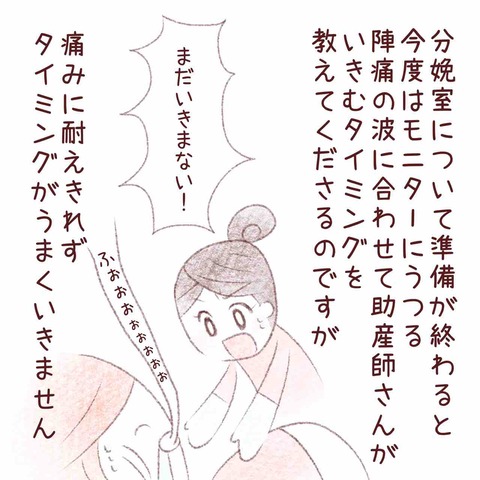 分娩室について準備が終わると
今度はモニターにうつる
陣痛の波に合わせて助産師さんが
いきむタイミングを
教えてくださるのですが
まだいきまない！
ふぉぉぉぉぉぉぉぉ
痛みに耐えきれず
タイミングがうまくいきません